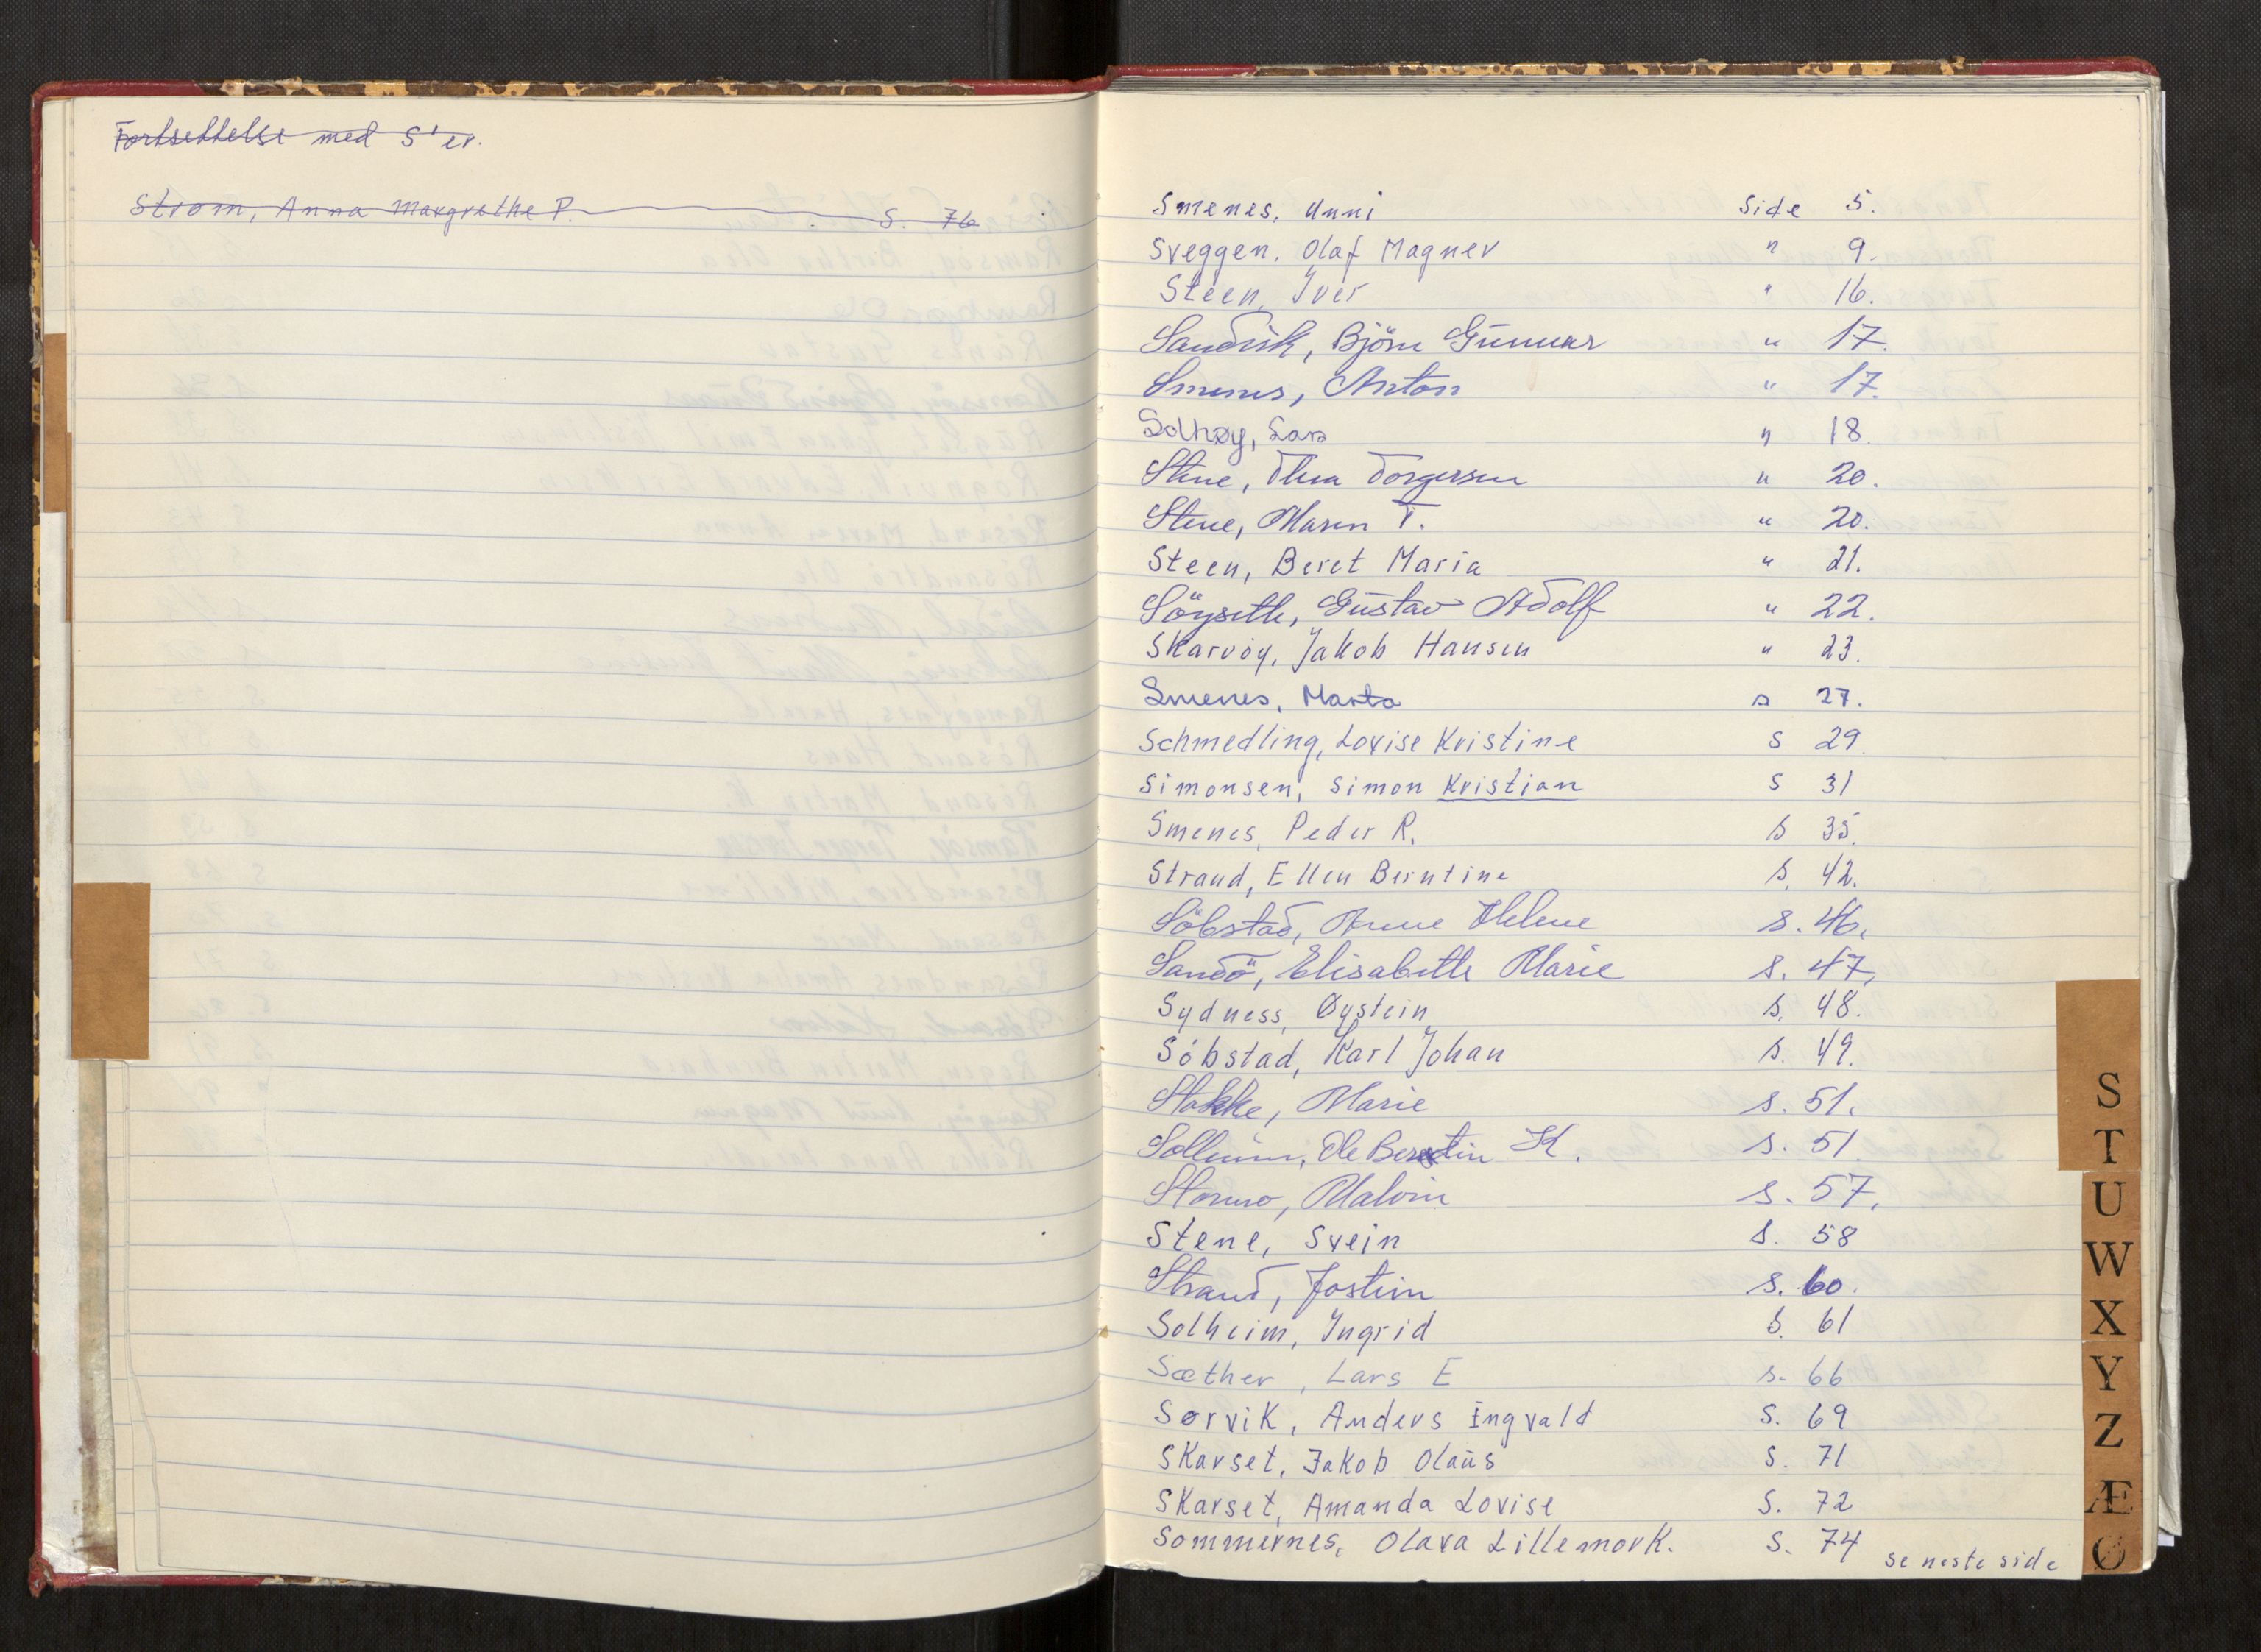 Fortsettelse med S'er.
Strøm, Anna Margrethe P. S. 76
Smenes, Unni Side 5.
Sveggen, Olaf Magnev " 9.
Steen, Iver " 16.
Sandvik, Björn Gunnar " 17.
Smenes, Anton " 17.
Solhøy, Lars " 18.
Stene, Thea Torgersen " 20.
Stene, Maren T. " 20.
Steen, Beret Maria " 21.
Söyseth, Gustav Adolf " 22.
Skarvøy, Jakob Hansen " 23.
Smenes, Marta s 27.
Schmedling, Lovise Kristine s 29.
Simonsen, Simon Kristian s 31
Smenes, Peder R. s 35.
Strand, Ellen Berntine s. 42.
Söbstad, Anne Helene s. 46.
Sandö, Elisabeth Marie s. 47,
Sydness, Øystein s. 48.
Söbstad, Karl Johan s. 49.
Stokke, Marie s. 51.
Sollium, Ole Berntin K. s. 51.
Stormo, Malvin s. 57.
Stene, Svein s. 58
Strand, Jostein s. 60.
Solheim, Ingrid s. 61
Sæther, Lars E s. 66
Sørvik, Anders Ingvald s. 69
Skarset, Jakob Olaus s. 71
Skarset, Amanda Lovise s. 72
Sommernes, Olava Lillemor K. s. 74
se neste side
S
T
U
W
X
Y
Z
Æ
Ø